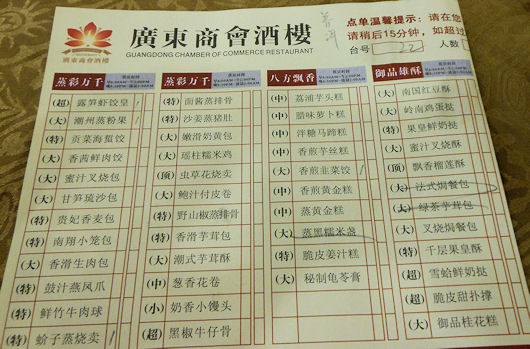 廣東商會酒樓
廣東商會酒樓
GUANGDONG CHAMBER OF COMMERCE RESTAURANT
普洱
点单温馨提示: 请在您
请稍后15分钟, 如超过
台号 22 人数
蒸彩万千
(超) 露笋虾饺皇
(大) 潮州蒸粉果
(特) 贡菜海蜇饺
(大) 香茜鲜肉饺
(大) 蜜汁叉烧包
(大) 甘笋琉沙包
(特) 贵妃香麦包
(特) 南翔小笼包
(大) 香滑生肉包
(特) 鼓汁蒸凤爪
(特) 鲜竹牛肉球
(特) 蚧子蒸烧卖
蒸彩万千
(特) 面酱蒸排骨
(特) 沙姜蒸猪肚
(大) 嫩滑奶黄包
(大) 瑶柱糯米鸡
(顶) 虫草花烧卖
(大) 鲍汁付皮卷
(特) 野山椒蒸排骨
(特) 香滑芋茸包
(大) 潮式芋茸酥
(中) 葱香花卷
(小) 奶香小馒头
(超) 黑椒牛仔骨
八方飘香
(中) 荔浦芋头糕
(中) 腊味萝卜糕
(中) 泮糖马蹄糕
(中) 香煎芋丝糕
(大) 香煎韭菜饺
(中) 香煎黄金糕
(中) 蒸黄金糕
(大) 蒸黑糯米盏
(特) 脆皮姜汁糕
(大) 秘制龟苓膏
御品雄酥
(大) 南国红豆酥
(大) 岭南鸡蛋挞
(特) 果皇鲜奶挞
(大) 蜜汁叉烧酥
(顶) 飘香榴莲酥
(大) 法式焗餐包
(大) 绿茶芋茸包
(大) 叉烧焗餐包
(特) 千层果皇酥
(超) 雪蛤鲜奶挞
(超) 脆皮甜扑撑
(大) 御品桂花糕